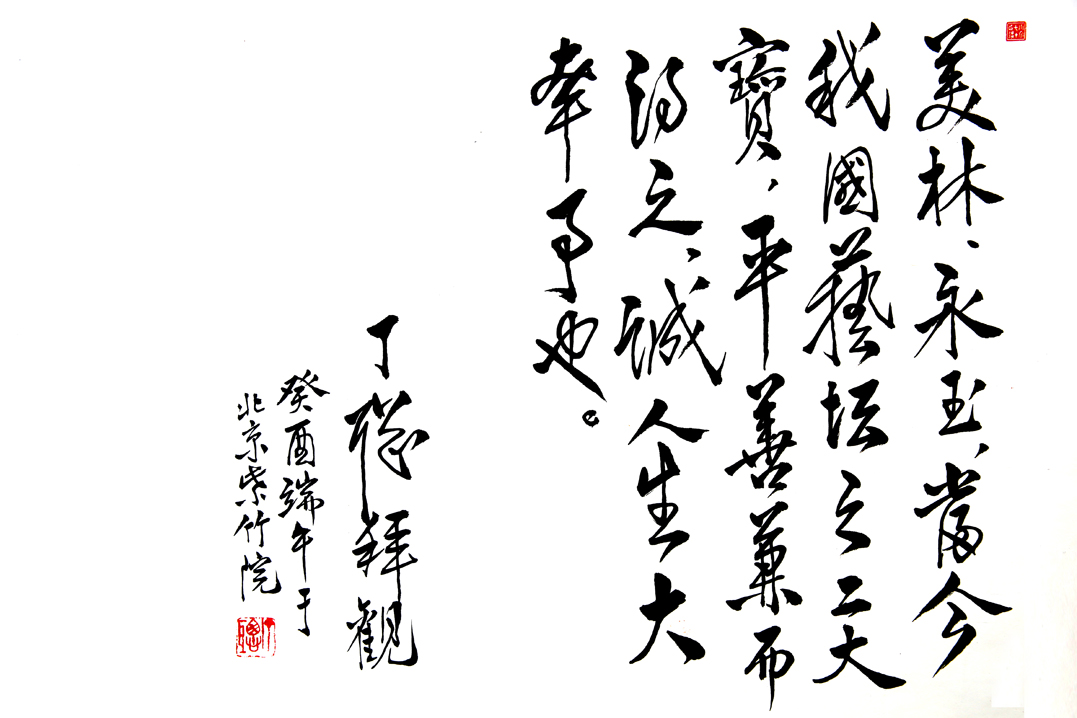 美林、永玉、當今
我國藝坛之二大
寶，平善兼而
得之、誠人生大
幸事也。
丁聪拜觀
癸酉端午于
北京紫竹院